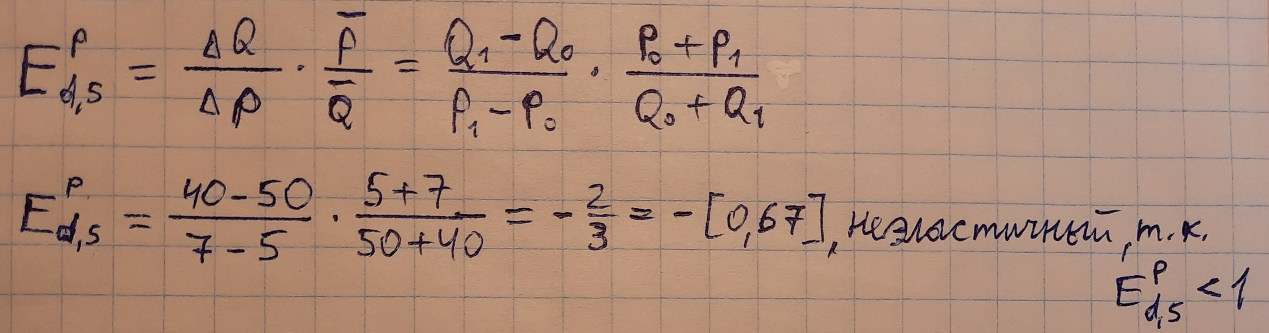 E^P_{d,s} = ΔQ/ΔP · P̄/Q̄ = (Q₁ - Q₀)/(P₁ - P₀) · (P₀ + P₁)/(Q₀ + Q₁)
E^P_{d,s} = (40 - 50)/(7 - 5) · (5 + 7)/(50 + 40) = - 2/3 = - [0,67], неэластичный, т.к.
E^P_{d,s} < 1